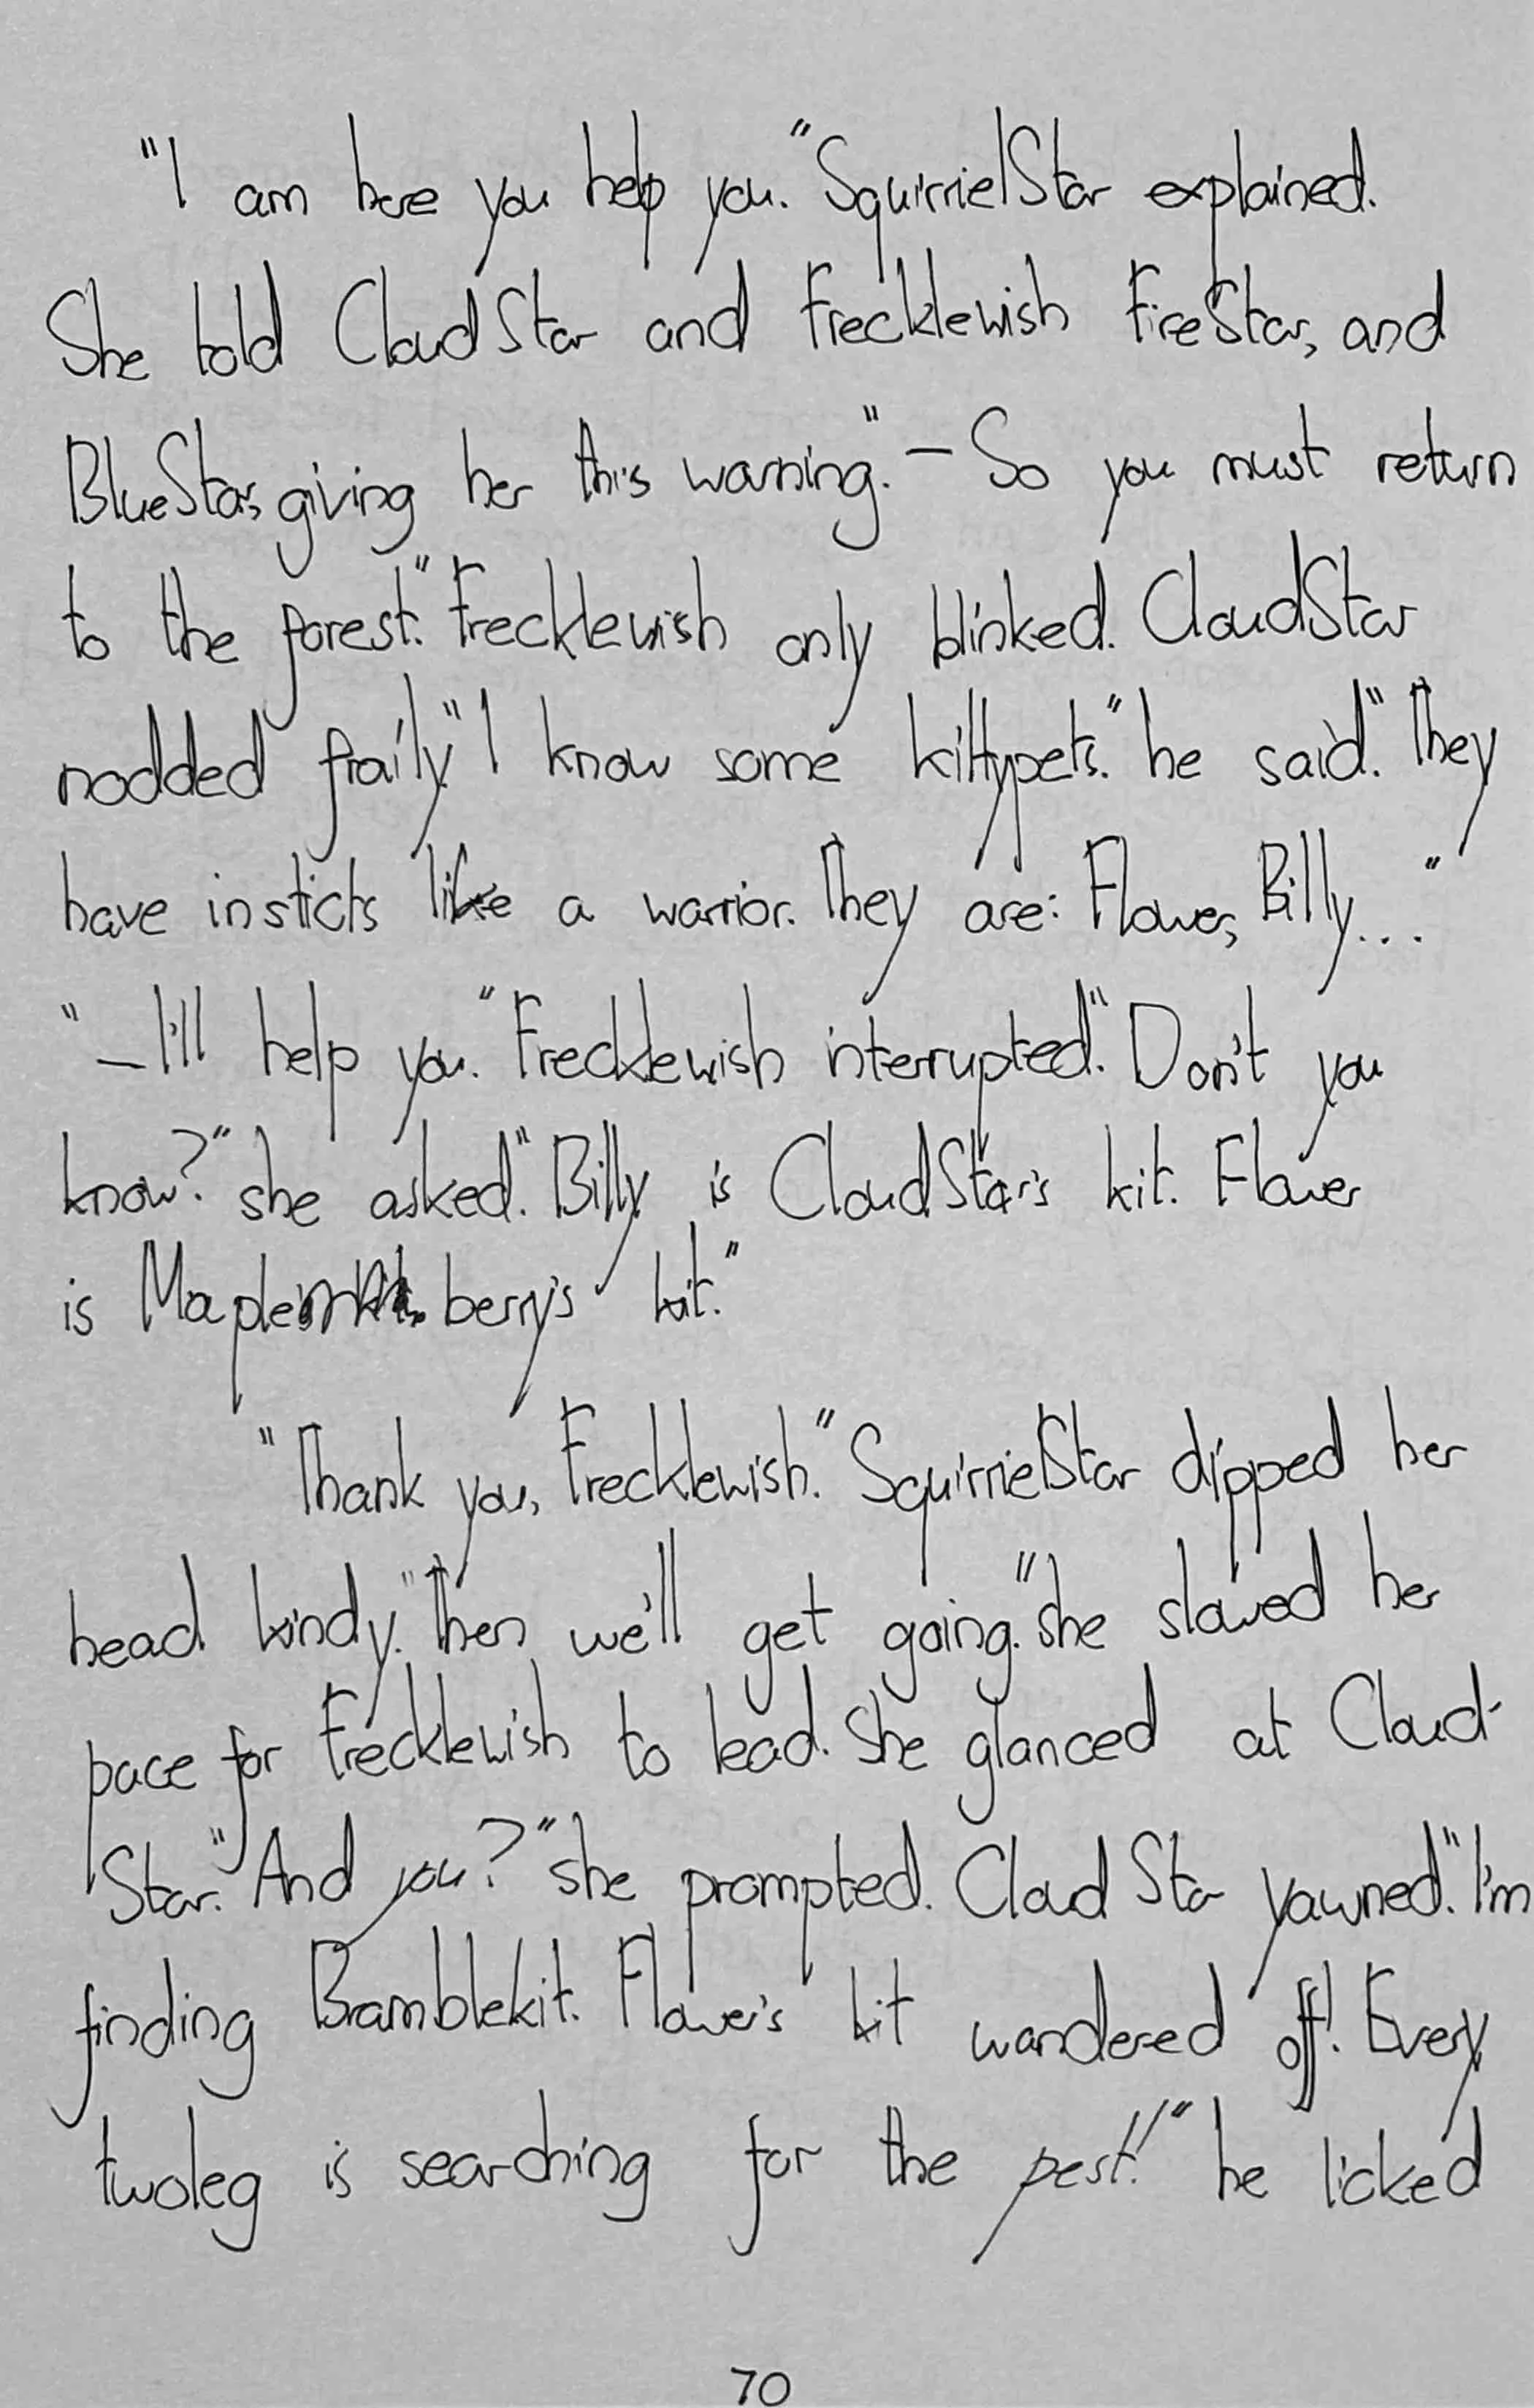 "I am here you help you." SquirrielStar explained.
She told CloudStar and Frecklewish FireStar, and
BlueStar, giving her this warning." — So you must return
to the forest." Frecklewish only blinked. CloudStar
nodded fraily." I know some kittypets." he said." They
have insticts like a warrior. They are: Flower, Billy..."
"— I'll help you." Frecklewish interrupted." Don't you
know?" she asked." Billy is CloudStar's kit. Flower
is Maple berry's kit."
"Thank you, Frecklewish." SquirrielStar dipped her
head kindy." Then we'll get going." she slowed her
pace for Frecklewish to lead. She glanced at Cloud-
Star." And you?" she prompted. CloudStar yawned." I'm
finding Bramblekit. Flower's kit wandered off! Every
twoleg is searching for the pest!" he licked
70